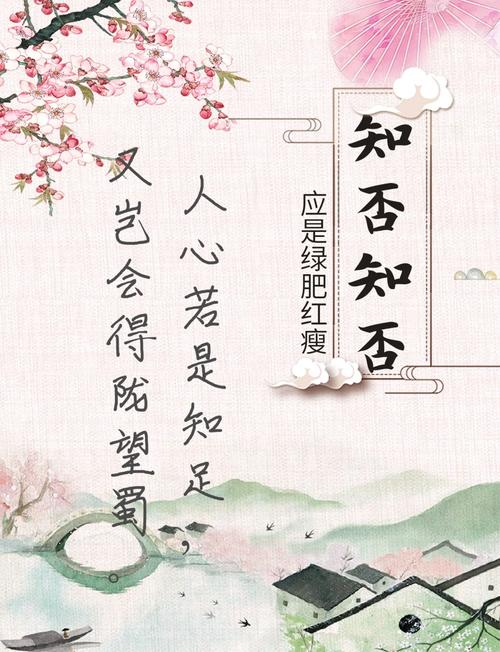 知否知否
应是绿肥红瘦
人心若是知足,
又岂会得陇望蜀。